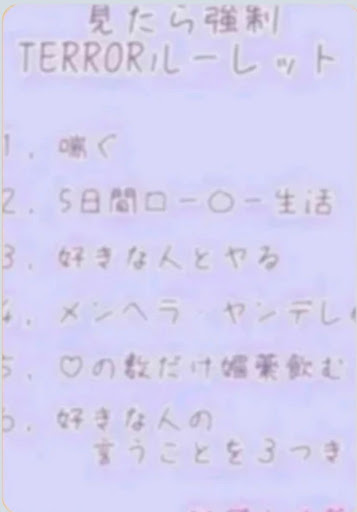 見たら強制
TERRORルーレット
1. 喘ぐ
2. 5日間ロー〇ー生活
3. 好きな人とヤる
4. メンヘラ・ヤンデレ
5. ♡の数だけ媚薬飲む
6. 好きな人の
言うことを3つき